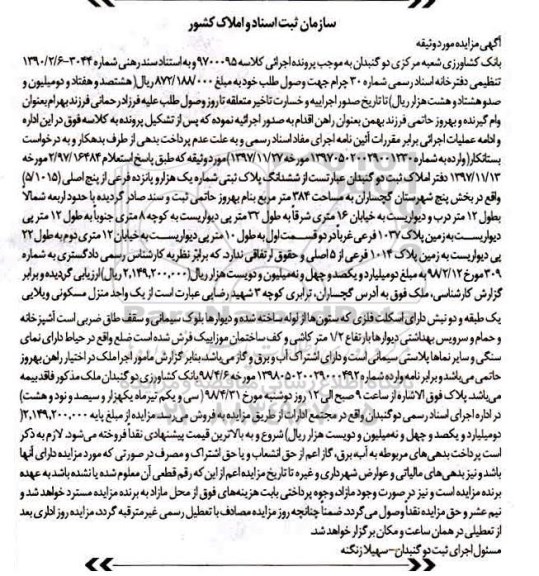 سازمان ثبت اسناد و املاک کشور
آگهی مزایده مورد وثیقه
بانک کشاورزی شعبه مرکزی دو گنبدان به موجب پرونده اجرائی کلاسه ۹۷۰۰۰۹۵ و به استناد سند رهنی شماره ۳۰۴۴-۱۳۹۰/۲/۶
تنظیمی دفتر خانه اسناد رسمی شماره ۳۰ چرام جهت وصول طلب خود به مبلغ ۸۷۲/۱۸۸/۰۰۰ ریال (هشتصد و هفتاد و دو میلیون و
صد و هشتاد و هشت هزار ریال) تا تاریخ صدور اجراییه و خسارت تاخیر متعلقه تا روز وصول طلب علیه فرزاد رحمانی فرزند بهرام بعنوان
وام گیرنده و بهروز حاتمی فرزند بهمن بعنوان راهن اقدام به صدور اجرائیه نموده که پس از تشکیل پرونده به کلاسه فوق در این اداره
و ادامه عملیات اجرائی برابر مقررات آئین نامه اجرای مفاد اسناد رسمی و به علت عدم پرداخت بدهی از طرف بدهکار و به درخواست
بستانکار (وارده به شماره ۱۳۹۷۰۵۰۲۰۰۲۹۰۰۱۲۳۰ مورخه ۱۳۹۷/۱۱/۲۷) مورد وثیقه که طبق پاسخ استعلام ۲/۹۷/۱۶۴۸۴ مورخه
۱۳۹۷/۱۱/۱۳ دفتر املاک ثبت دو گنبدان عبارتست از ششدانگ پلاک ثبتی شماره یک هزار و پانزده فرعی از پنج اصلی (۵/۱۰۱۵)
واقع در بخش پنج شهرستان گچساران به مساحت ۳۸۴ متر مربع بنام بهروز حاتمی ثبت و سند صادر گردیده با حدود اربعه شمالاً
بطول ۱۲ متر درب و دیواریست به خیابان ۱۶ متری شرقاً به طول ۳۲ متر پی دیواریست به کوچه ۸ متری جنوباً به طول ۱۲ متر پی
دیواریست به زمین پلاک ۱۰۳۷ فرعی غرباً در دو قسمت اول به طول ۱۰ متر پی دیواریست به خیابان ۱۲ متری دوم به طول ۲۲
پی دیواریست به زمین پلاک ۱۰۱۴ فرعی از ۵ اصلی و حقوق ارتفاقی ندارد. که برابر نظریه کارشناس رسمی دادگستری به شماره
۳۰۹ مورخ ۹۸/۲/۱۲ به مبلغ دو میلیارد و یکصد و چهل و نه میلیون و دویست هزار ریال (۲,۱۴۹,۲۰۰,۰۰۰ ریال) ارزیابی گردیده و برابر
گزارش کارشناسی، ملک فوق به آدرس گچساران، ترابری کوچه ۳ شهید رضایی عبارت است از یک واحد منزل مسکونی ویلایی
یک طبقه و دو نیش دارای اسکلت فلزی که ستون‌ها از لوله ساخته شده و دیوارها بلوک سیمانی و سقف طاق ضربی است آشپزخانه
و حمام و سرویس بهداشتی دیوارها با ارتفاع ۱/۲ متر کاشی و کف ساختمان موزاییک فرش شده است ضلع واقع در حیاط دارای نمای
سنگی و سایر نماها پلاستی سیمانی است و دارای اشتراک آب و برق و گاز می‌باشد. بنابر گزارش مامور اجرا ملک در اختیار راهن بهروز
حاتمی می‌باشد و برابر نامه وارده شماره ۱۳۹۸۰۵۰۲۰۰۲۹۰۰۰۴۹۲ مورخه ۹۸/۴/۶ بانک کشاورزی دو گنبدان ملک مذکور فاقد بیمه
می‌باشد. پلاک فوق الاشاره از ساعت ۹ صبح الی ۱۲ روز دوشنبه مورخ ۹۸/۴/۳۱ (سی و یکم تیر ماه یکهزار و سیصد و نود و هشت)
در اداره اجرای اسناد رسمی دو گنبدان واقع در مجتمع ادارات از طریق مزایده به فروش می‌رسد. مزایده از مبلغ پایه ۲,۱۴۹,۲۰۰,۰۰۰
(دو میلیارد و یکصد و چهل و نه میلیون و دویست هزار ریال) شروع و به بالاترین قیمت پیشنهادی نقداً فروخته می‌شود. لازم به ذکر
است پرداخت بدهی‌های مربوطه به آب، برق، گاز اعم از حق انشعاب و یا حق اشتراک و مصرف در صورتی که مورد مزایده دارای آنها
باشد و نیز بدهی‌های مالیاتی و عوارض شهرداری و غیره تا تاریخ مزایده اعم از این که رقم قطعی آن معلوم شده یا نشده باشد به عهده
برنده مزایده است و نیز در صورت وجود مازاد، وجوه پرداختی بابت هزینه‌های فوق از محل مازاد به برنده مزایده مسترد خواهد شد و
نیم عشر و حق مزایده نقداً وصول می‌گردد. ضمناً چنانچه روز مزایده مصادف با تعطیل رسمی غیر مترقبه گردد، مزایده روز اداری بعد
از تعطیلی در همان ساعت و مکان برگزار خواهد شد.
مسئول اجرای ثبت دو گنبدان - سهیلا زنگنه